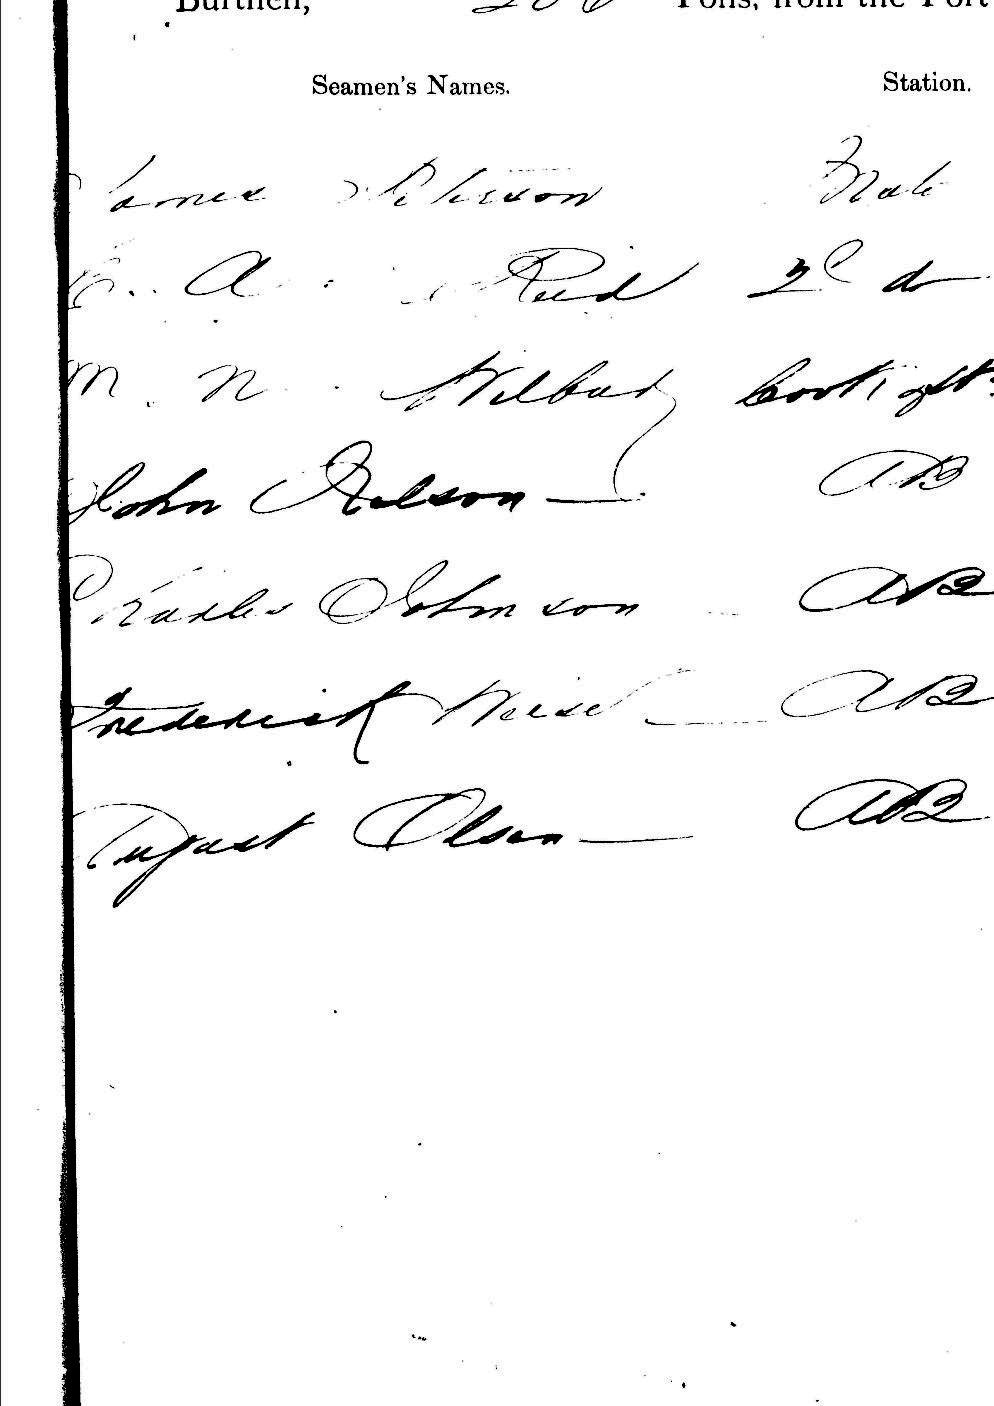 Burthen, Tons, from the Port
Seamen's Names. Station.
James Peterson Mate
A. Reid 2d do
M. N. Wilbur Cook & St:
John Nelson — AB
Charles Johnson AB
Frederick Weise — AB
August Olsen — AB